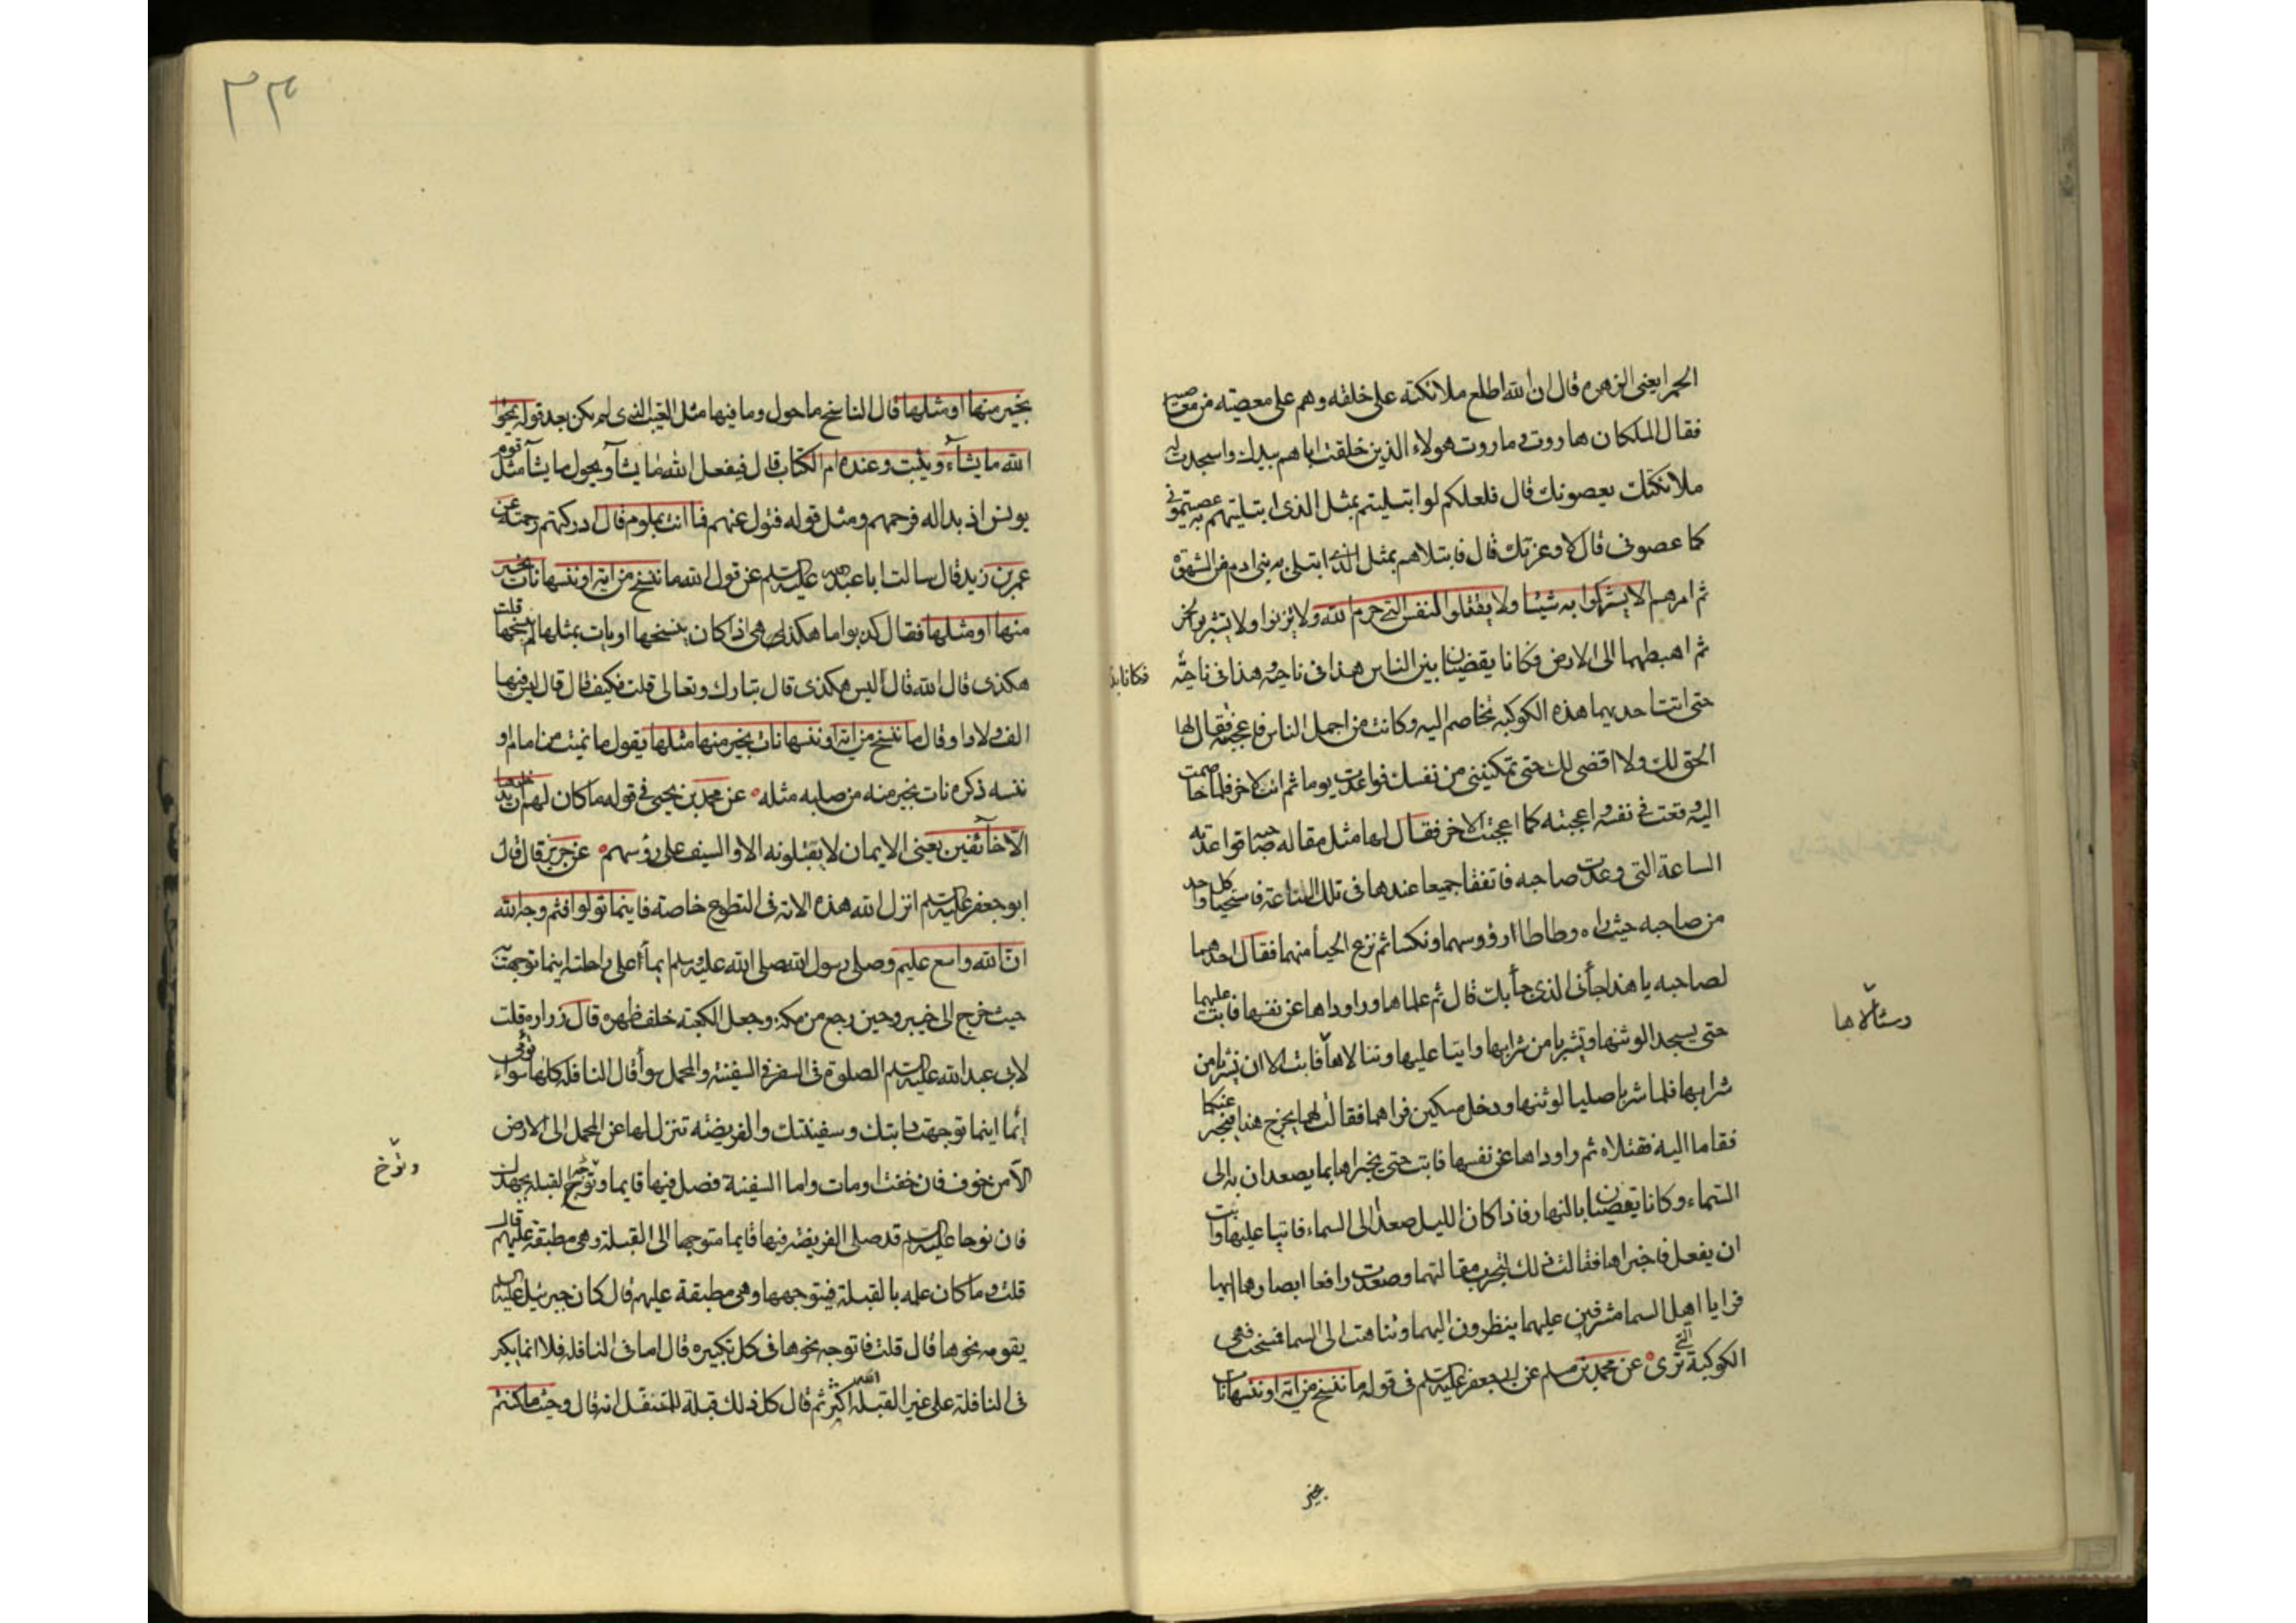 الحمرا يعنى الزهره قال ان الله اطلع ملائكته على خلقه وهم على معصيته من معاصيه
فقال الملكان هاروت و ماروت هولاء الذين خلقت اباهم بيدك واسجدت له
ملائكتك يعصونك قال فلعلكم لو ابتليتم بمثل الذى ابتليتهم به عصيتمونى
كما عصونى قال لا وعزتك قال فابتلاهم بمثل الذى ابتلى به بنى ادم من الشهوة
ثم امرهم الا يشركوا به شيئا ولا يقتلوا النفس التى حرم الله ولا يزنوا ولا يشربوا الخمر
ثم اهبطهما الى الارض فكانا يقضيان بين الناس هذا فى ناحية وهذا فى ناحية
فكانا
حتى اتت احديهما هذه الكوكبه تخاصم اليه وكانت من اجمل الناس فاعجبته فقال لها
الحق لك ولا اقضى لك حتى تمكنينى من نفسك فواعدت يوما ثم اتت الاخر فلما خاصمت
اليه وقعت فى نفسه واعجبته كما اعجبت الاخر فقال لها مثل مقالة صاحبه فواعدته
الساعة التى وعدت صاحبه فاتفقا جميعا عندها فى تلك الساعة فاستحيا كل واحد
من صاحبه حيث راه وطاطا ارؤوسهما ونكسا ثم نزع الحيأ منهما فقال احدهما
لصاحبه يا هذا جأنى الذى جأ بك قال ثم علماها وراوداها عن نفسها فابت عليهما
حتى يسجد الوثنها ويشربا من شرابها وابيا عليها وسالاها فابت الا ان يشربا من
وسئالاها
شرابها فلما شربا صليا لوثنها ودخل مسكين فراهما فقالت لهما يخرج هذا فيخبر عنكما
فقاما اليه فقتلاه ثم راوداها عن نفسها فابت حتى يخبراها بما يصعدان به الى
السماء وكانا يقضيان بالنهار فاذا كان الليل صعدا الى السماء فابيا عليها وابت
ان يفعل فاخبراها فقالت ذلك لتجرب مقالتهما وصعدت رافعا ابصارهما اليها
فرايا اهل السما مشرفين عليهما ينظرون اليهما وتناهت الى السما فمسخت فهى
الكوكبة التى ترى عن محمد بن مسلم عن ابى جعفر عليه السلم فى قوله ما ننسخ من اية او ننسها نات
بخير
٣٣
بخير منها او مثلها قال الناسخ ما حول وما فيها مثل الغيب الذى لم يكن بعد قوله يمحوا
الله ما يشاء ويثبت وعنده ام الكتاب قال فيفعل الله ما يشأ ويحول ما يشأ مثل قوم
يونس اذ بدا له فرحمهم ومثل قوله فتول عنهم فما انت بملوم قال ادركتهم رحمته عن
عمر بن زيد قال سالت ابا عبد الله عليه السلم عن قول الله ما ننسخ من اية او ننسها نات بخير
منها او مثلها فقال كذبوا ما هكذا هى اذا كان ينسخها او يات بمثلها لم ينسخها قلت
هكذى قال الله قال أليس هكذى قال تبارك وتعالى قلت فكيف قال قال ليس فيها
الف ولا واو قال ما ننسخ من اية او ننسها نات بخير منها مثلها يقول ما نميت من امام او
ننسه ذكره نات بخير منه من صلبه مثله عن محمد بن يحيى فى قوله ما كان لهم ان يدخلوها
الا خائفين يعنى الايمان لا يقبلونه الا والسيف على رؤسهم عن حريز قال قال
ابو جعفر عليه السلم انزل الله هذه الاية فى التطوع خاصة فاينما تولوا فثم وجه الله
ان الله واسع عليم وصلى رسول الله صلى الله عليه وسلم ايمأ على راحلته اينما توجهت به
حيث خرج الى خيبر وحين رجع من مكة وجعل الكعبة خلف ظهره قال زراره قلت
لابى عبد الله عليه السلم الصلوة فى السفر فى السفينة والمحمل سوأ قال النافلة كلها سواء تومى
إنما اينما توجهت دابتك وسفينتك والفريضه تنزل لها عن المحمل الى الارض
الا من خوف فان خفت اومات واما السفينة فصل فيها قايما وتوخ القبلة بجهدك
وتوخ
فان نوحا عليه السلم قد صلى الفريضه فيها قايما متوجها الى القبلة وهى مطبقة عليهم قال
قلت وما كان علمه بالقبلة فيتوجهها وهى مطبقة عليهم قال كان جبرئيل عليه السلم
يقومه نحوها قال قلت فاتوجه نحوها فى كل تكبيره قال اما فى النافله فلا انما يكبر
فى النافلة على غير القبلة الله اكبر ثم قال كل ذلك قبلة للمتنفل انه قال وحيث ما كنتم